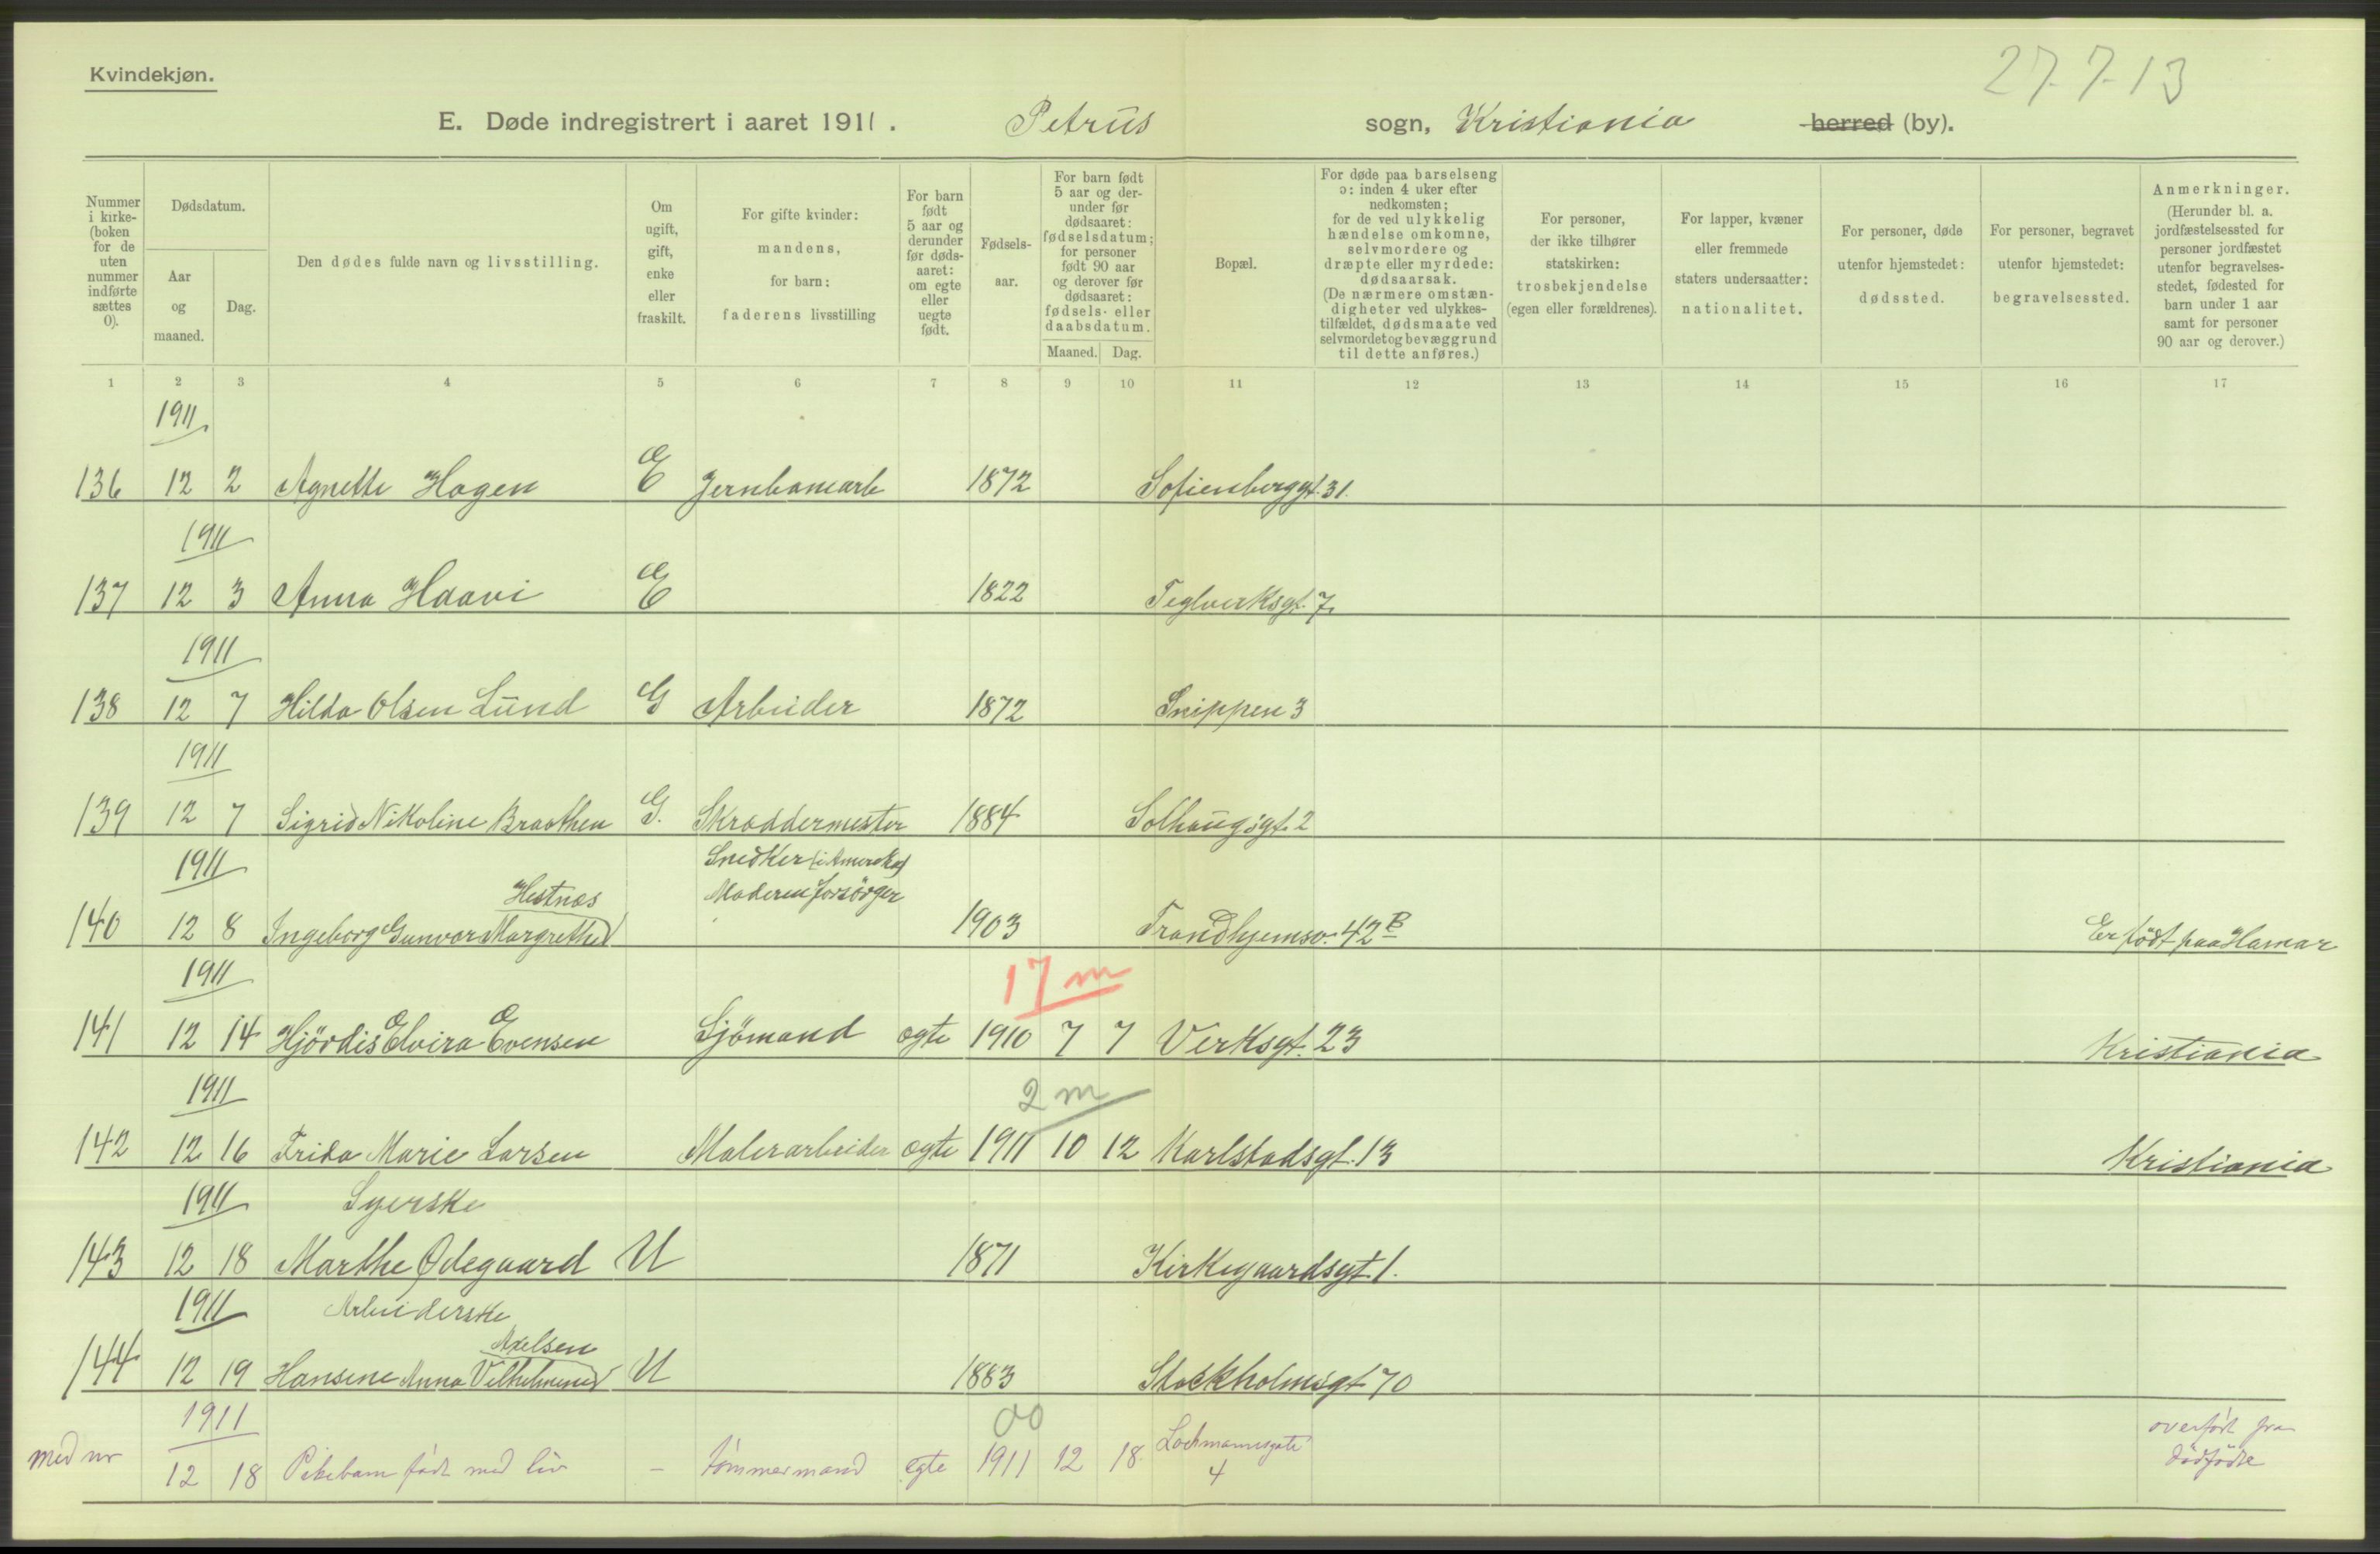 Kvindekjøn.
27-7-13
E. Døde indregistrert i aaret 1911. Petrus sogn, Kristiania herred (by).
Nummer i kirke-(boken for de uten nummer indførte sættes 0).
Dødsdatum.
Aar og maaned.
Dag.
Den dødes fulde navn og livsstilling.
Om ugift, gift, enke eller fraskilt.
For gifte kvinder: mandens, for barn: faderens livsstilling
For barn født 5 aar og derunder før døds-aaret: om egte eller uegte født.
Fødsels-aar.
For barn født 5 aar og der-under før dødsaaret: fødselsdatum; for personer født 90 aar og derover før dødsaaret: fødsels- eller daabsdatum.
Maaned. Dag.
Bopæl.
For døde paa barselseng ɔ: inden 4 uker efter nedkomsten; for de ved ulykkelig hændelse omkomne, selvmordere og dræpte eller myrdede: dødsaarsak. (De nærmere omstæn-digheter ved ulykkes-tilfældet, dødsmaate ved selvmordet og bevæggrund til dette anføres.)
For personer, der ikke tilhører statskirken: trosbekjendelse (egen eller forældrenes).
For lapper, kvæner eller fremmede staters undersaatter: nationalitet.
For personer, døde utenfor hjemstedet: dødssted.
For personer, begravet utenfor hjemstedet: begravelsessted.
Anmerkninger. (Herunder bl. a. jordfæstelsessted for personer jordfæstet utenfor begravelses-stedet, fødested for barn under 1 aar samt for personer 90 aar og derover.)
1 2 3 4 5 6 7 8 9 10 11 12 13 14 15 16 17
1911
136 12 2 Agnethe Hagen E Jernbanearb 1872 Sofienberggt. 31.
1911
137 12 3 Anna Haavi E 1822 Teglverksgt. 7
1911
138 12 7 Hilda Olsen Lund G Arbeider 1872 Snippen 3
1911
139 12 7 Sigrid Nikoline Braathen G. Skræddermester 1884 Solhauggt. 2
1911 Snedker (i Amerika)
Hestnæs Moderen forsörger
140 12 8 Ingeborg Gunvor Margrethe 1903 Trondhjemsv. 42B Er födt paa Hamar
1911 17 m
141 12 14 Hjördis Elvira Evensen Sjömand egte 1910 7 7 Verksgt. 23 Kristiania
1911 2 m
142 12 16 Frida Marie Larsen Malerarbeider egte 1911 10 12 Karlstadsgt. 13 Kristiania
1911 Syerske
143 12 18 Marthe Ødegaard U 1871 Kirkegaardsgt. 1.
1911 Arbeiderske
Axelsen
144 12 19 Hansine Anna Vilhelmine U 1883 Stockholmsgt 70
1911 00 Lochmannsgate overført fra
med nr 12 18 Pikebarn født med liv - tømmermand egte 1911 12 18. 4 dødfødte